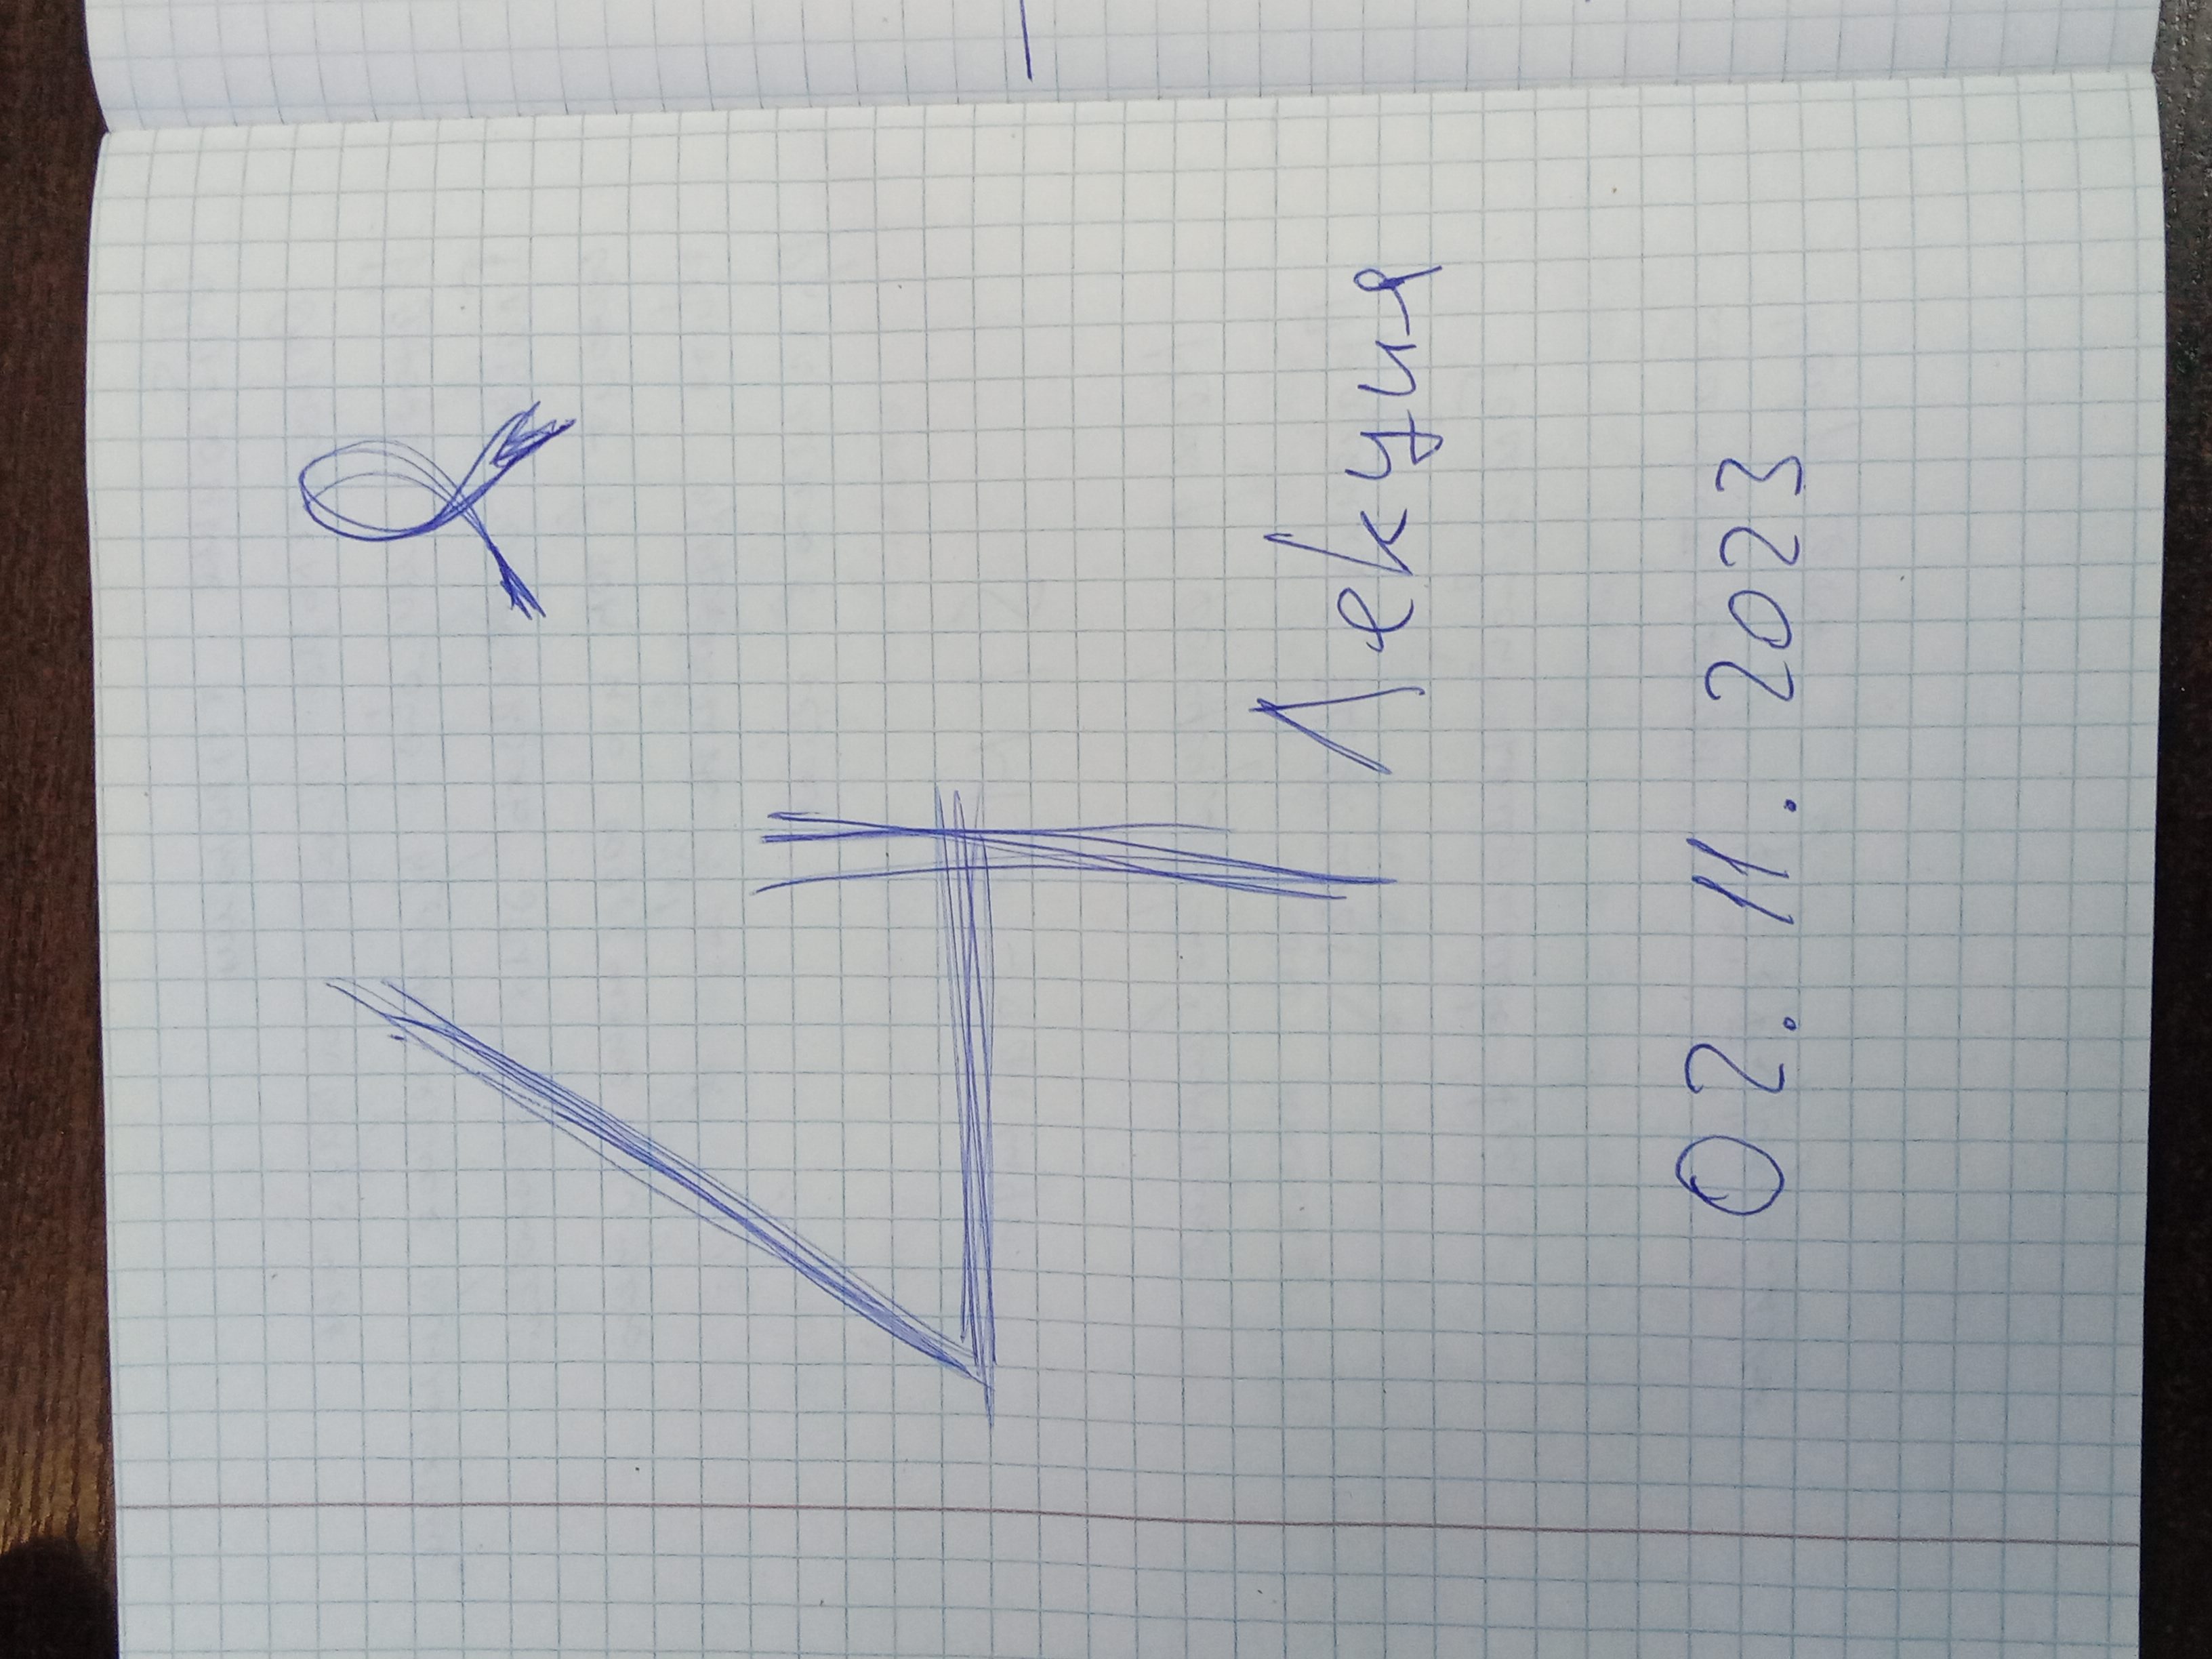 4
Лекция
02.11.2023